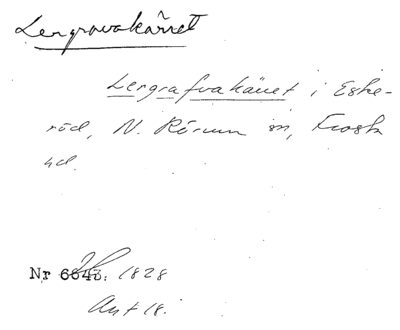 Lergravakärret
Lergrafvakäret i Eske-
röd, N. Rörum sn, Frosta
hd.
Nr 6643. 1828
Ant 18.